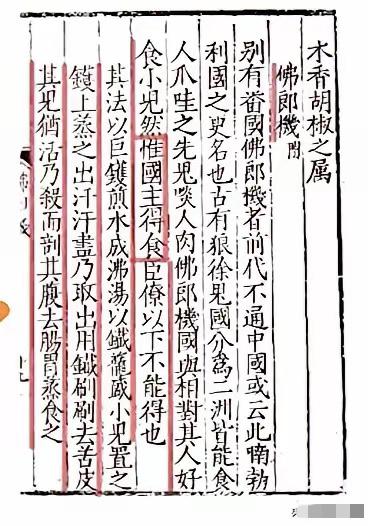 木香胡椒之属
佛郎機
别有畨國佛郎機者前代不通中國或云此喃勃
利國之更名也古有狼徐鬼國分爲二洲皆能食
人爪哇之先鬼啖人肉佛郎機國與相對其人好
食小兒然惟國主得食臣僚以下不能得也
其法以巨鑊煎水成沸湯以鐵籠盛小兒置之
鑊上蒸之出汗汗盡乃取出用鐵刷刷去苦皮
其兒猶活乃殺而剖其腹去腸胃蒸食之